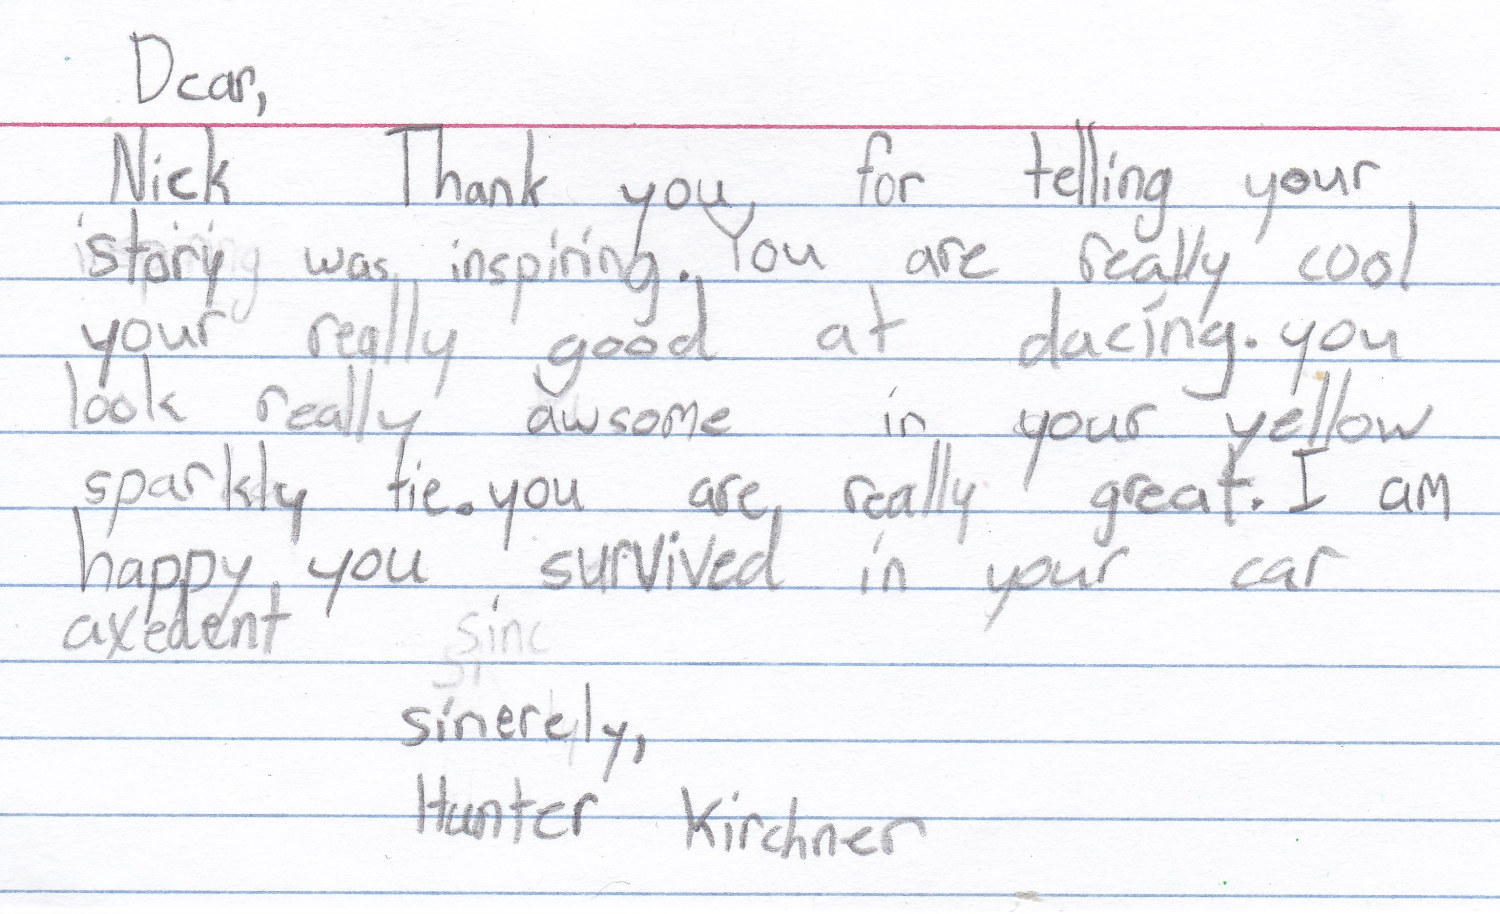 Dear,
Nick Thank you for telling your
story was inspiring. You are really cool
your really good at dacing. you
look really awsome in your yellow
sparkly tie. you are really great. I am
happy you survived in your car
axedent sinc
si
sinerely,
Hunter Kirchner